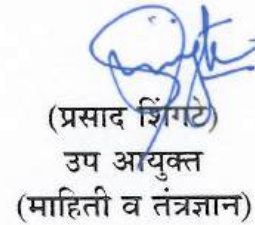 (प्रसाद शिंगटे)
उप आयुक्त
(माहिती व तंत्रज्ञान)